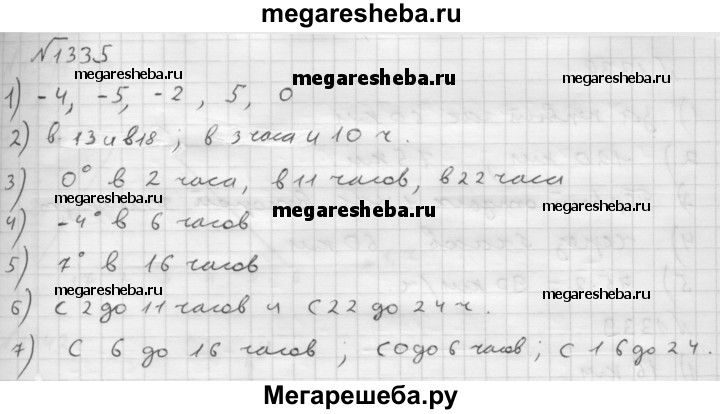 megaresheba.ru
№1335
megaresheba.ru megaresheba.ru megaresheba.ru
1) -4, -5, -2, 5, 0
2) в 13 и в 18; в 3 часа и 10 ч.
3) 0° в 2 часа, в 11 часов, в 22 часа
megaresheba.ru megaresheba.ru megaresheba.ru
4) -4° в 6 часов
5) 7° в 16 часов
megaresheba.ru megaresheba.ru
6) С 2 до 11 часов и с 22 до 24 ч.
7) С 6 до 16 часов; С 0 до 6 часов; с 16 до 24.
Мегарешеба.ру